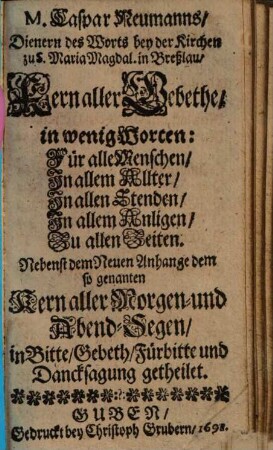 M. Caspar Neumanns/
Dienern des Worts bey der Kirchen
zu S. Maria Magdal. in Breßlau/
Kern aller Gebethe/
in wenig Worten:
Für alle Menschen/
In allem Allter/
In allen Stenden/
In allem Anligen/
Zu allen Zeiten.
Nebenst dem Neuen Anhange dem
so genanten
Kern aller Morgen- und
Abend-Segen/
in Bitte/Gebeth/Fürbitte und
Dancksagung getheilet.
GUBEN/
Gedruckt bey Christoph Grubern/1698.